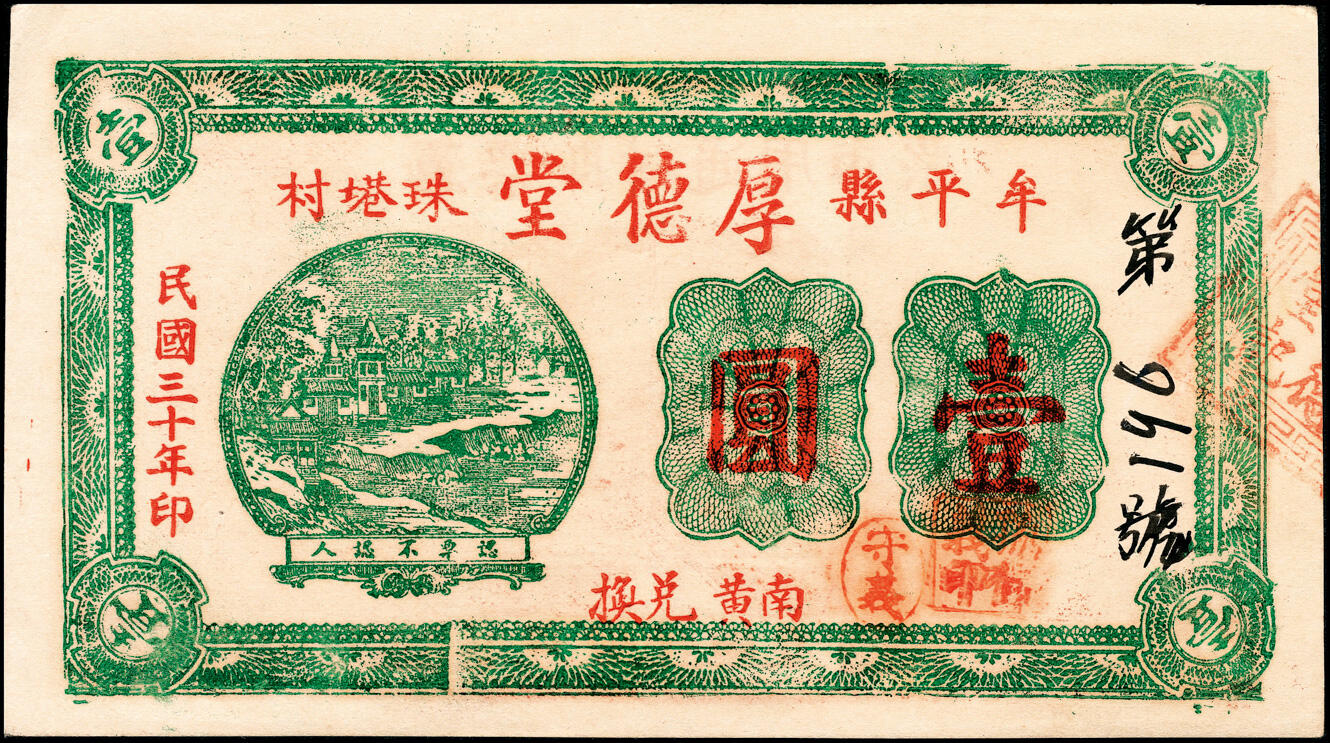 牟平縣 厚德堂 珠塂村
壹
壹
壹圓
第
號
民國三十年印
認票不認人
南黄兌換
守義
壹
壹